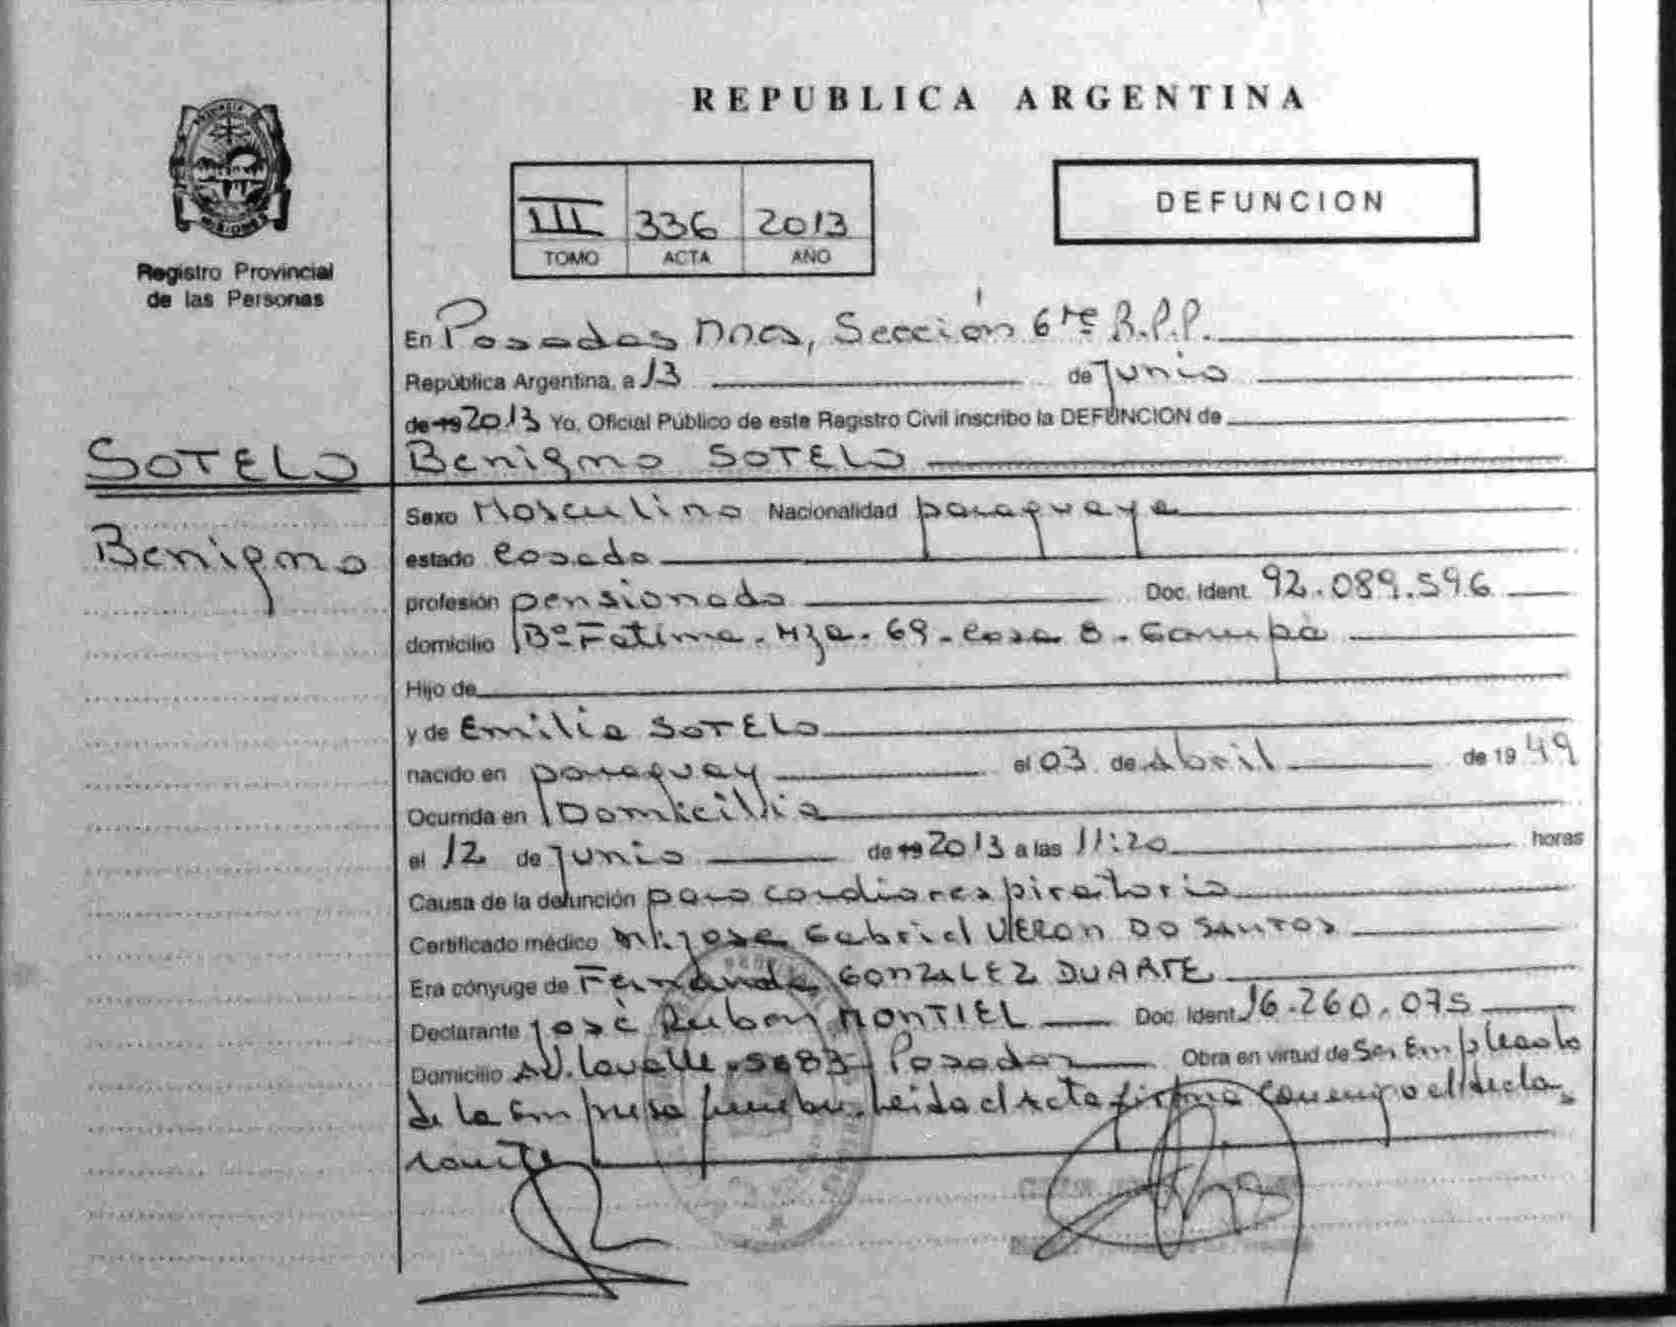 REPUBLICA ARGENTINA
PROVINCIA DE MISIONES
Registro Provincial
de las Personas
III 336 2013
TOMO ACTA AÑO
DEFUNCION
En Posadas Mnes, Sección 6ta R.P.P.
República Argentina, a 13 de Junio
de 19 2013 Yo, Oficial Público de este Registro Civil inscribo la DEFUNCION de
SOTELO
Benigno
Benigno SOTELO
Sexo Masculino Nacionalidad paraguaya
estado casado
profesión pensionado Doc. Ident. 92.089.596
domicilio Bº Fatima - Mza. 69 - casa 8 - Garupá
Hijo de
y de Emilia SOTELO
nacido en paraguay el 03 de Abril de 1949
Ocurrida en Domicilio
el 12 de Junio de 19 2013 a las 11:20 horas
Causa de la defunción paro cardiorespiratorio
Certificado médico José Gabriel VERON DO SANTOS
Era cónyuge de Fernanda GONZALEZ DUARTE
Declarante José Ruben MONTIEL Doc. Ident. 16.260.075
Domicilio AV. Lavalle 5683 Posadas Obra en virtud de Ser Empleado
de la Empresa funebre. Leida el Acta firma conmigo el decla-
rante